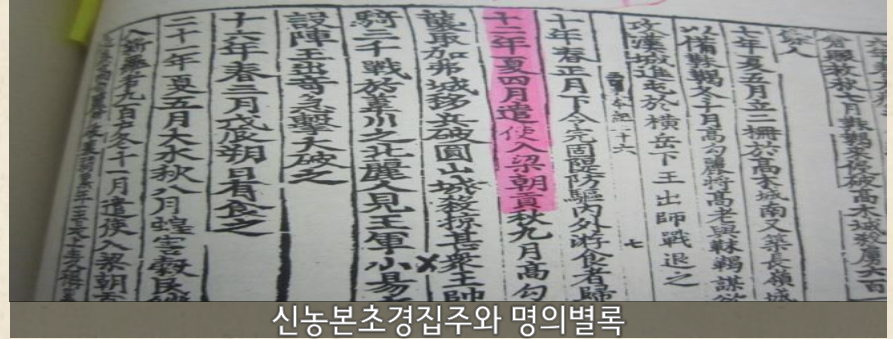 倉賑救秋七月靺鞨來侵破高木城殺虜六百
七年夏五月立二柵於高木城南又築長嶺城
以備靺鞨冬十月高句麗將高老與靺鞨謀欲
攻漢城進屯於橫岳下王出師戰退之
本紀二十六 七
十年春正月下令完固隄防驅內外游食者歸
十二年夏四月遣使入梁朝貢秋九月高句
襲取加弗城移兵破圓山城殺掠甚衆王帥
騎三千戰於葦川之北麗人見王軍小易
設陣王出奇急擊大破之
十六年春三月戊辰朔日有食之
二十一年夏五月大水秋八月蝗害穀民
入新羅者九百戶冬十一月遣使入梁朝
신농본초경집주와 명의별록